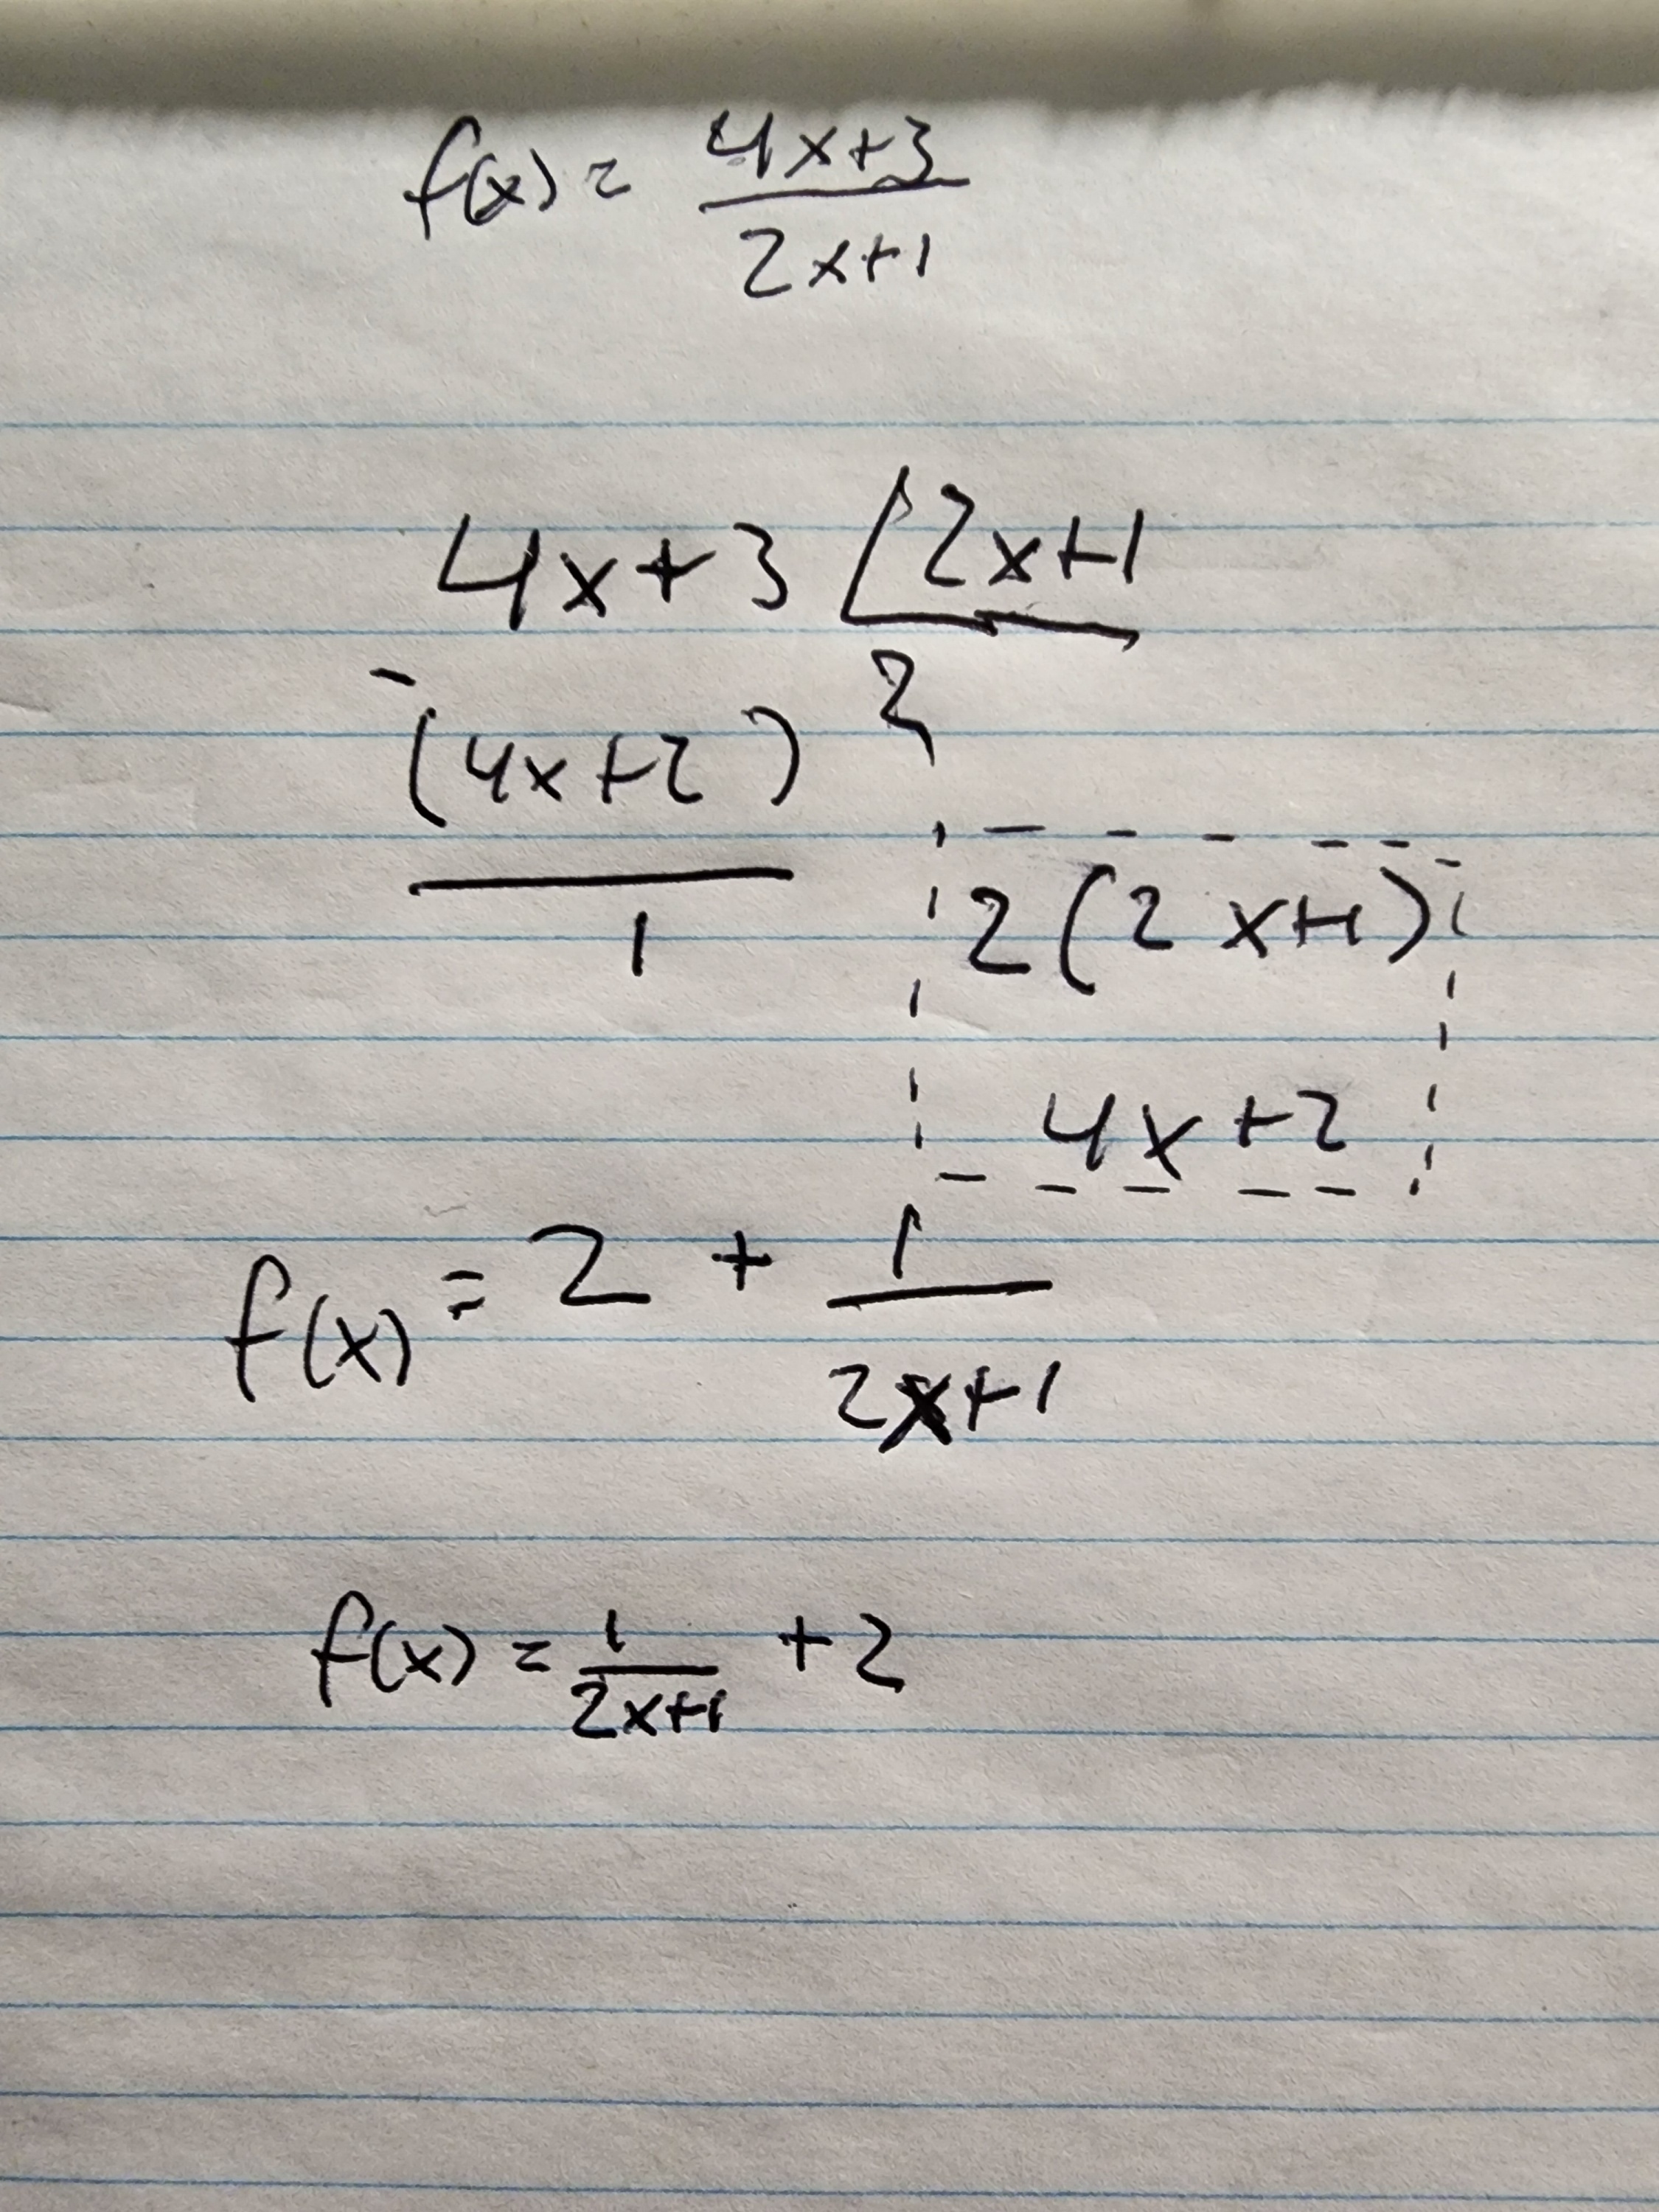 f(x) = 4x+3
2x+1
4x+3 2x+1
- (4x+2) 2
1
2(2x+1)
4x+2
f(x) = 2 + 1
2x+1
f(x) = 1/2x+1 +2